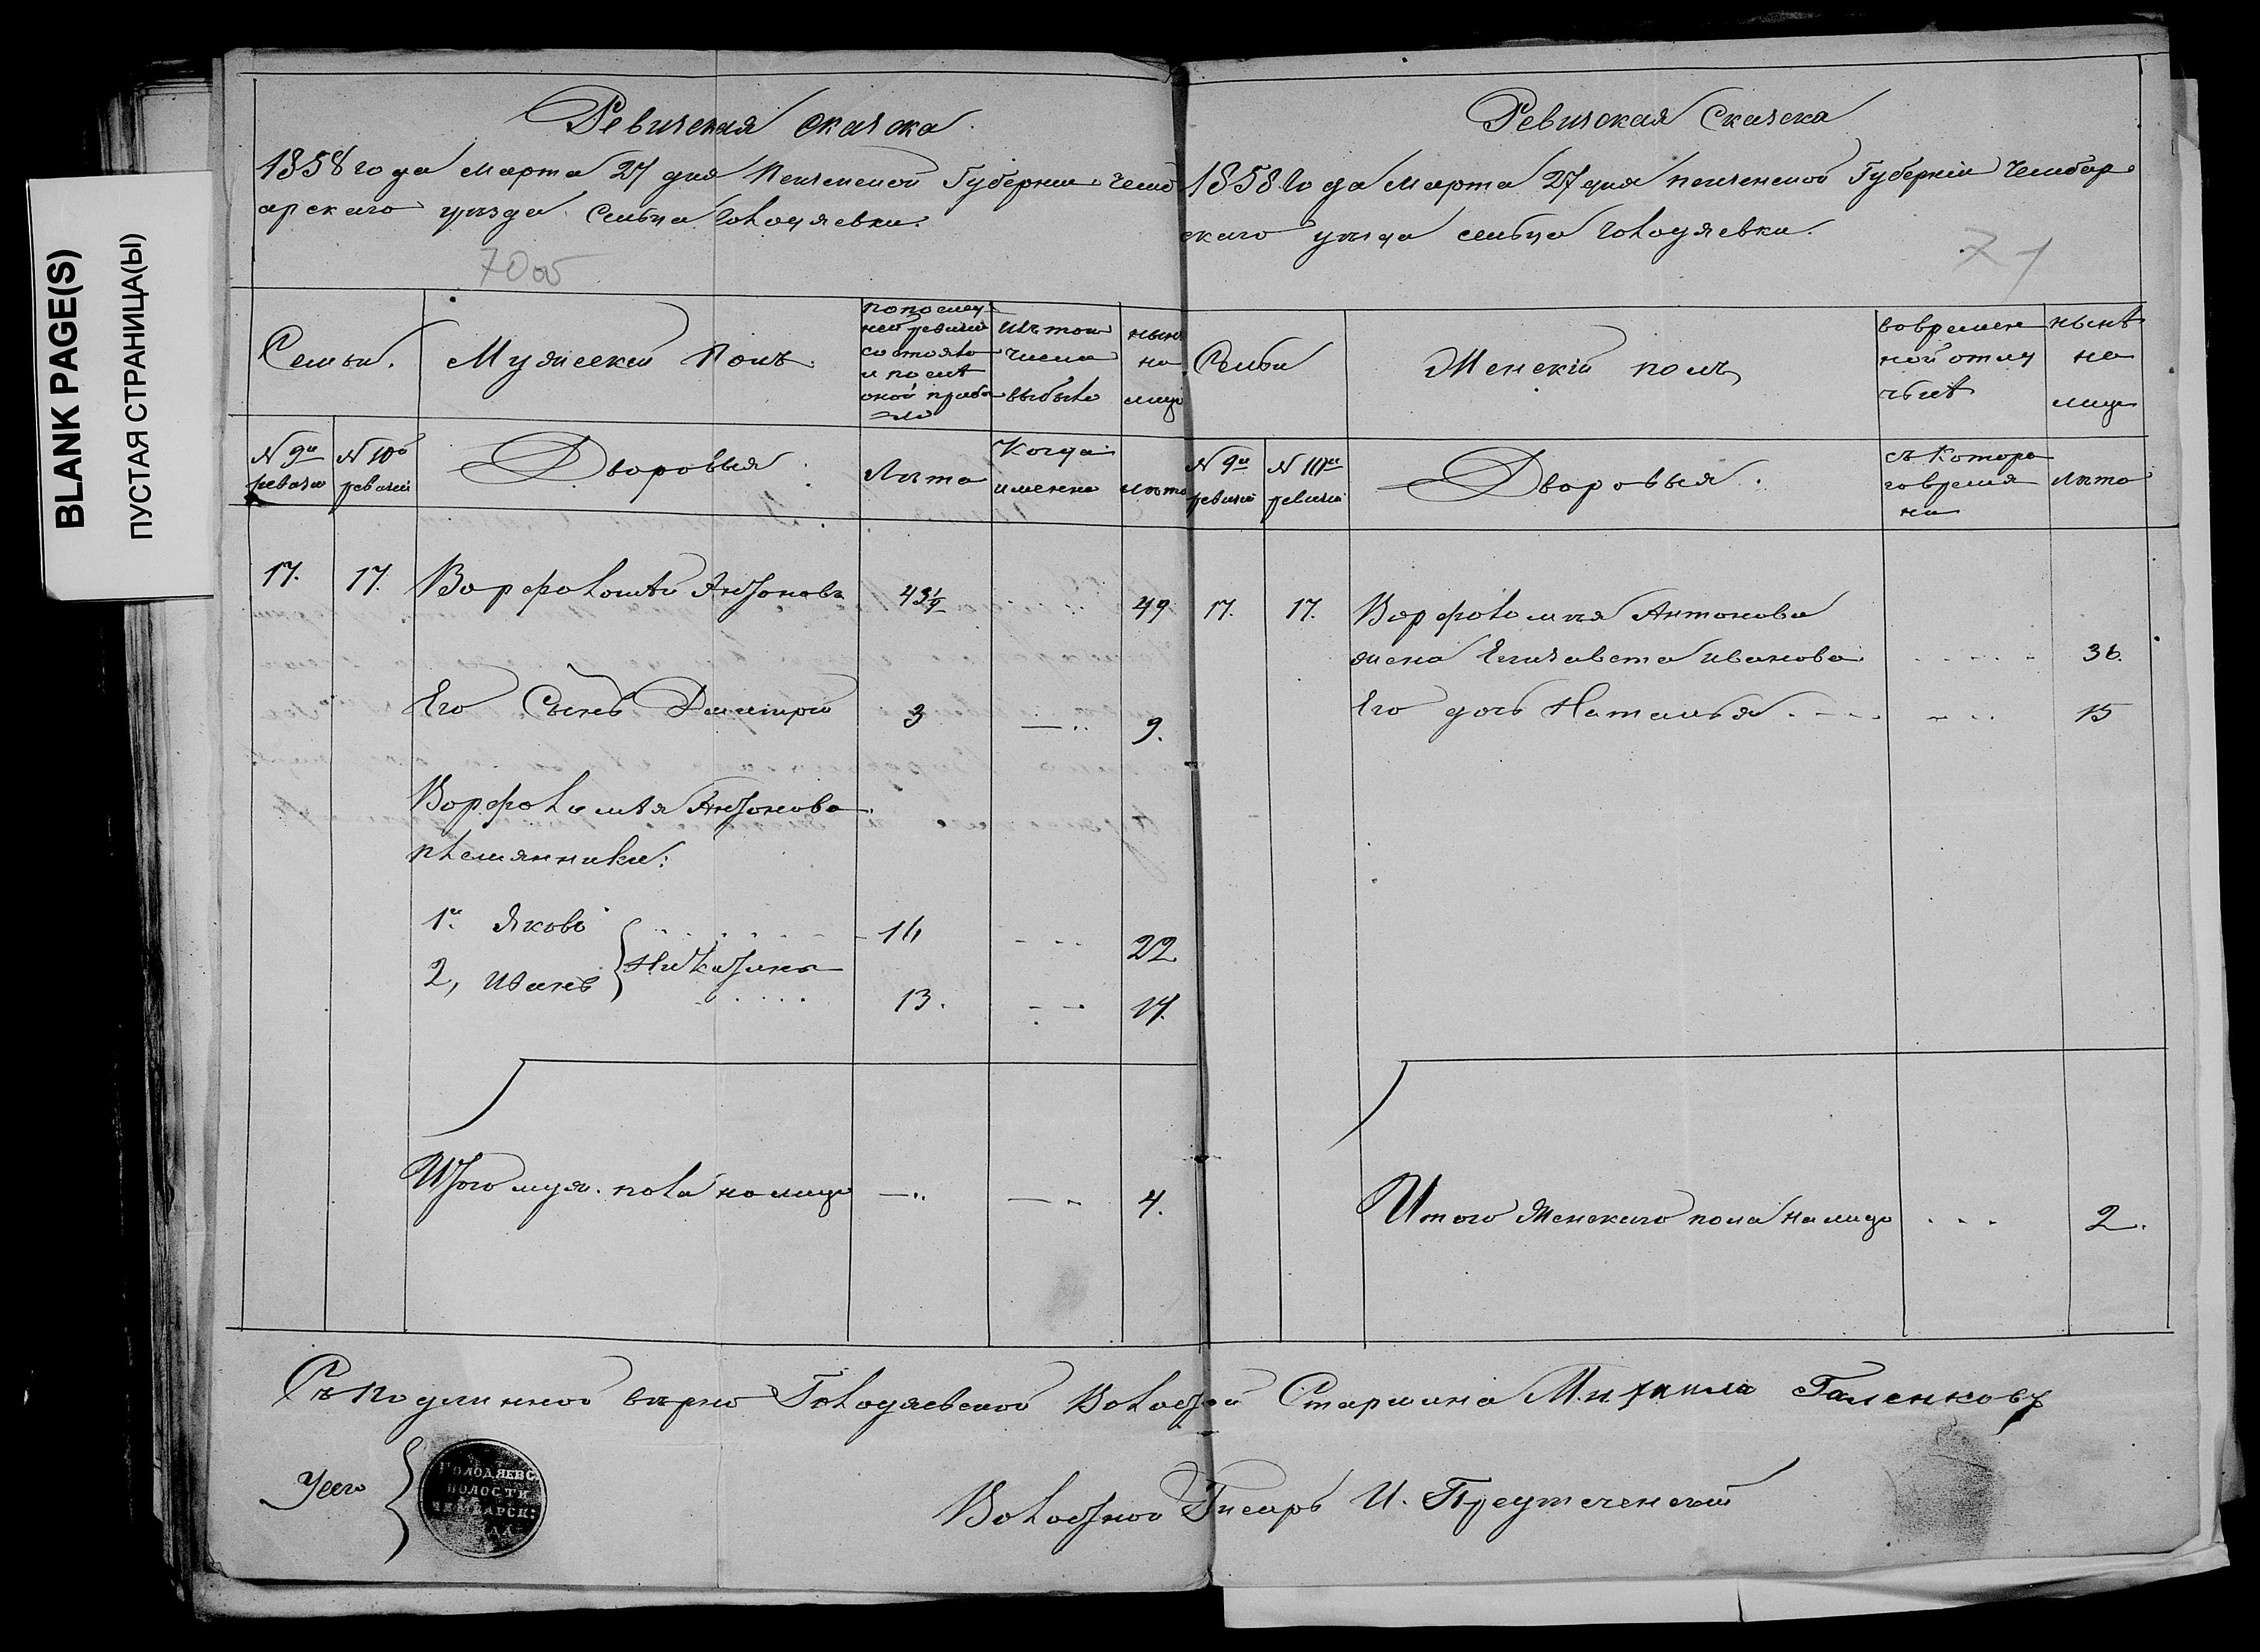 BLANK PAGE(S)
ПУСТАЯ СТРАНИЦА(Ы)
Ревизская сказка
1858 года Марта 27 дня Пензенской Губернии Чемб
арскаго уѣзда Сельца Голодяевки.
70об
Семьи.
Мужеский Полъ.
по послед
ней ревизии
состояло
и послѣ
оной прибы
ло
Изъ того
числа
выбыло
нынѣ
на
лицо
№ 9й
ревизии
№ 10й
ревизии
Дворовыя
Лѣта
Когда
именно
лѣта
17. 17. Варфоломѣй Антоновъ 43½ 49
Его Сынъ Дмитрий 3 9.
Варфоломѣя Антонова
племянники:
1й Яковъ 16 22
Никитины
2, Иванъ 13. 17.
Итого муж. пола на лицо 4.
Ревизская Сказка
1858 Года Марта 27 дня Пензенской Губерніи Чембар
скаго уѣзда сельца Голодяевки.
71
Семьи
Женскій полъ
во времен
ной отлу
чкѣ
нынѣ
на
лицо
№ 9й
ревизии
№ 10й
ревизии
Дворовыя.
съ котора
го време
ни
лѣта
17. 17. Варфоломѣя Антонова
жена Елизавета Иванова 36.
Его дочь Наталья 15
Итого Женскаго пола на лицо 2.
Съ подлинной вѣрно Голодяевской Волостной Старшина Михаила Галенковъ
У сего
ГОЛОДЯЕВС.
ВОЛОСТИ
ЧЕМБАРСК:
Волостной Писарь И. Предтеченский